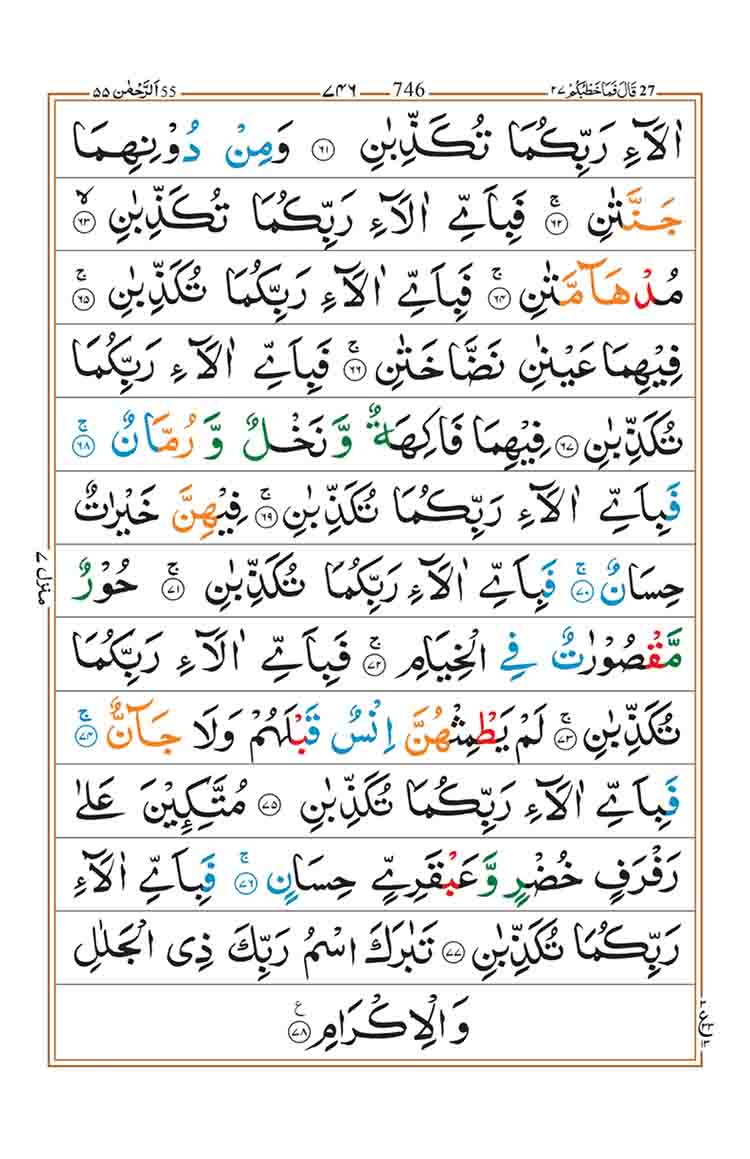 27 قَالَ فَمَا خَطْبُكُمْ ٢٧ 746 ٧٤٦ 55 اَلرَّحْمٰن ٥٥
اٰلَآءِ رَبِّكُمَا تُكَذِّبٰنِ ۝٦١ وَمِنْ دُوْنِهِمَا
جَنَّتٰنِ ۚ۝٦٢ فَبِاَيِّ اٰلَآءِ رَبِّكُمَا تُكَذِّبٰنِ ۙ۝٦٣
مُدْهَآمَّتٰنِ ۚ۝٦٤ فَبِاَيِّ اٰلَآءِ رَبِّكُمَا تُكَذِّبٰنِ ۚ۝٦٥
فِيْهِمَا عَيْنٰنِ نَضَّاخَتٰنِ ۚ۝٦٦ فَبِاَيِّ اٰلَآءِ رَبِّكُمَا
تُكَذِّبٰنِ ۝٦٧ فِيْهِمَا فَاكِهَةٌ وَّ نَخْلٌ وَّ رُمَّانٌ ۚ۝٦٨
فَبِاَيِّ اٰلَآءِ رَبِّكُمَا تُكَذِّبٰنِ ۚ۝٦٩ فِيْهِنَّ خَيْرٰتٌ
حِسَانٌ ۚ۝٧٠ فَبِاَيِّ اٰلَآءِ رَبِّكُمَا تُكَذِّبٰنِ ۚ۝٧١ حُوْرٌ
مَّقْصُوْرٰتٌ فِي الْخِيَامِ ۚ۝٧٢ فَبِاَيِّ اٰلَآءِ رَبِّكُمَا
تُكَذِّبٰنِ ۚ۝٧٣ لَمْ يَطْمِثْهُنَّ اِنْسٌ قَبْلَهُمْ وَلَا جَآنٌّ ۚ۝٧٤
فَبِاَيِّ اٰلَآءِ رَبِّكُمَا تُكَذِّبٰنِ ۝٧٥ مُتَّكِـِٕيْنَ عَلٰى
رَفْرَفٍ خُضْرٍ وَّعَبْقَرِيٍّ حِسَانٍ ۚ۝٧٦ فَبِاَيِّ اٰلَآءِ
رَبِّكُمَا تُكَذِّبٰنِ ۝٧٧ تَبٰرَكَ اسْمُ رَبِّكَ ذِى الْجَلٰلِ
وَالْاِكْرَامِ ۝٧٨ ع
منزل ٧